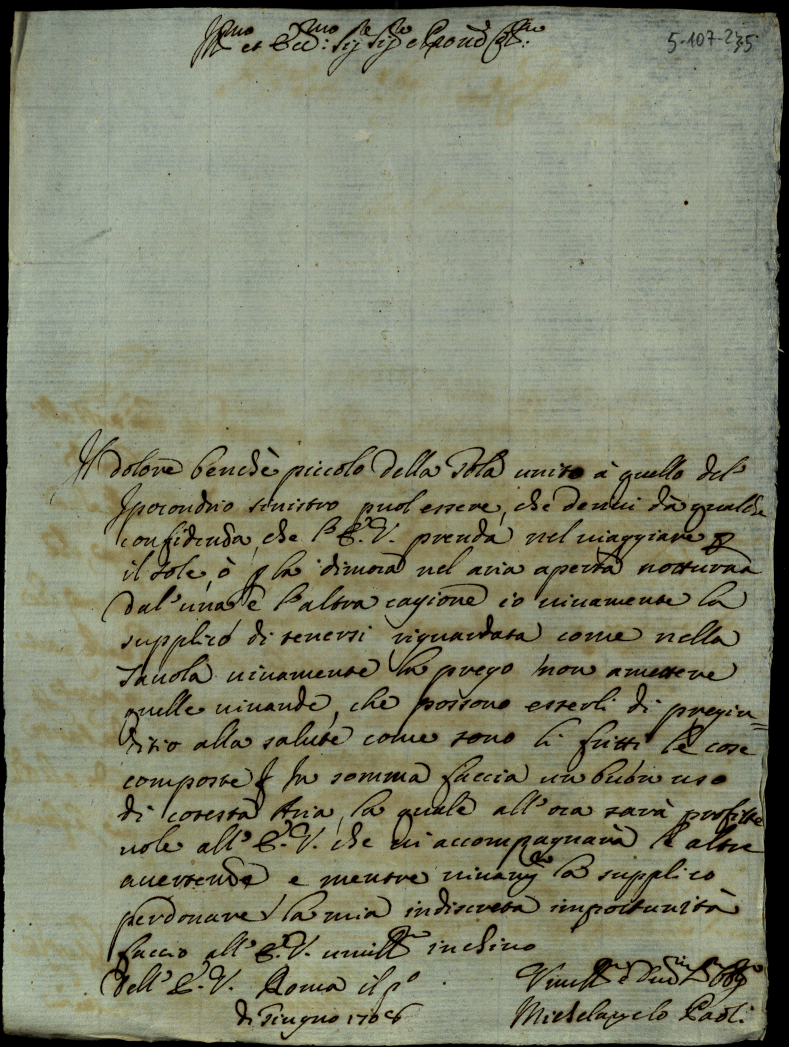 Ill.mo et Ecc.mo Sig.re Sig.re e Pron Col.mo
5-107-235
Il dolore benchè piccolo della Gola unito à quello del'
Ipocondrio sinistro puol essere, che deriui dà qualche
confidenza, che l'E.V. prenda nel uiaggiare p
il sole, ò p la dimora nel aria aperta notturna
dal'una è l'altra cagione io uiuamente la
supplico di tenersi riguardata come nella
Tauola uiuamente la prego non amettere
quelle uiuande, che possono esserli di pregiu=
ditio alla salute come sono li fritti le cose
composte In somma faccia un buon uso
di cotesta Aria, la quale all'ora sarà profitte
uole all'E.V. che ui accompagnarà l'altre
auertenze e mentre uiuam.te la supplico
perdonare la mia indiscreta importunità
faccio all'E.V. umill.mo inchino
Dell'E.V. Roma il p.o
di Giugno 1706
Michelangelo Paoli